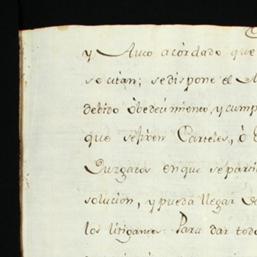 y Auto acordado que
se citan; se dispone el
debido obedecimiento, y cump
que se pren Carteles, ó
Juzgados en que se parti
solucion, y pueda llegar
los litigantes: Para dar todo